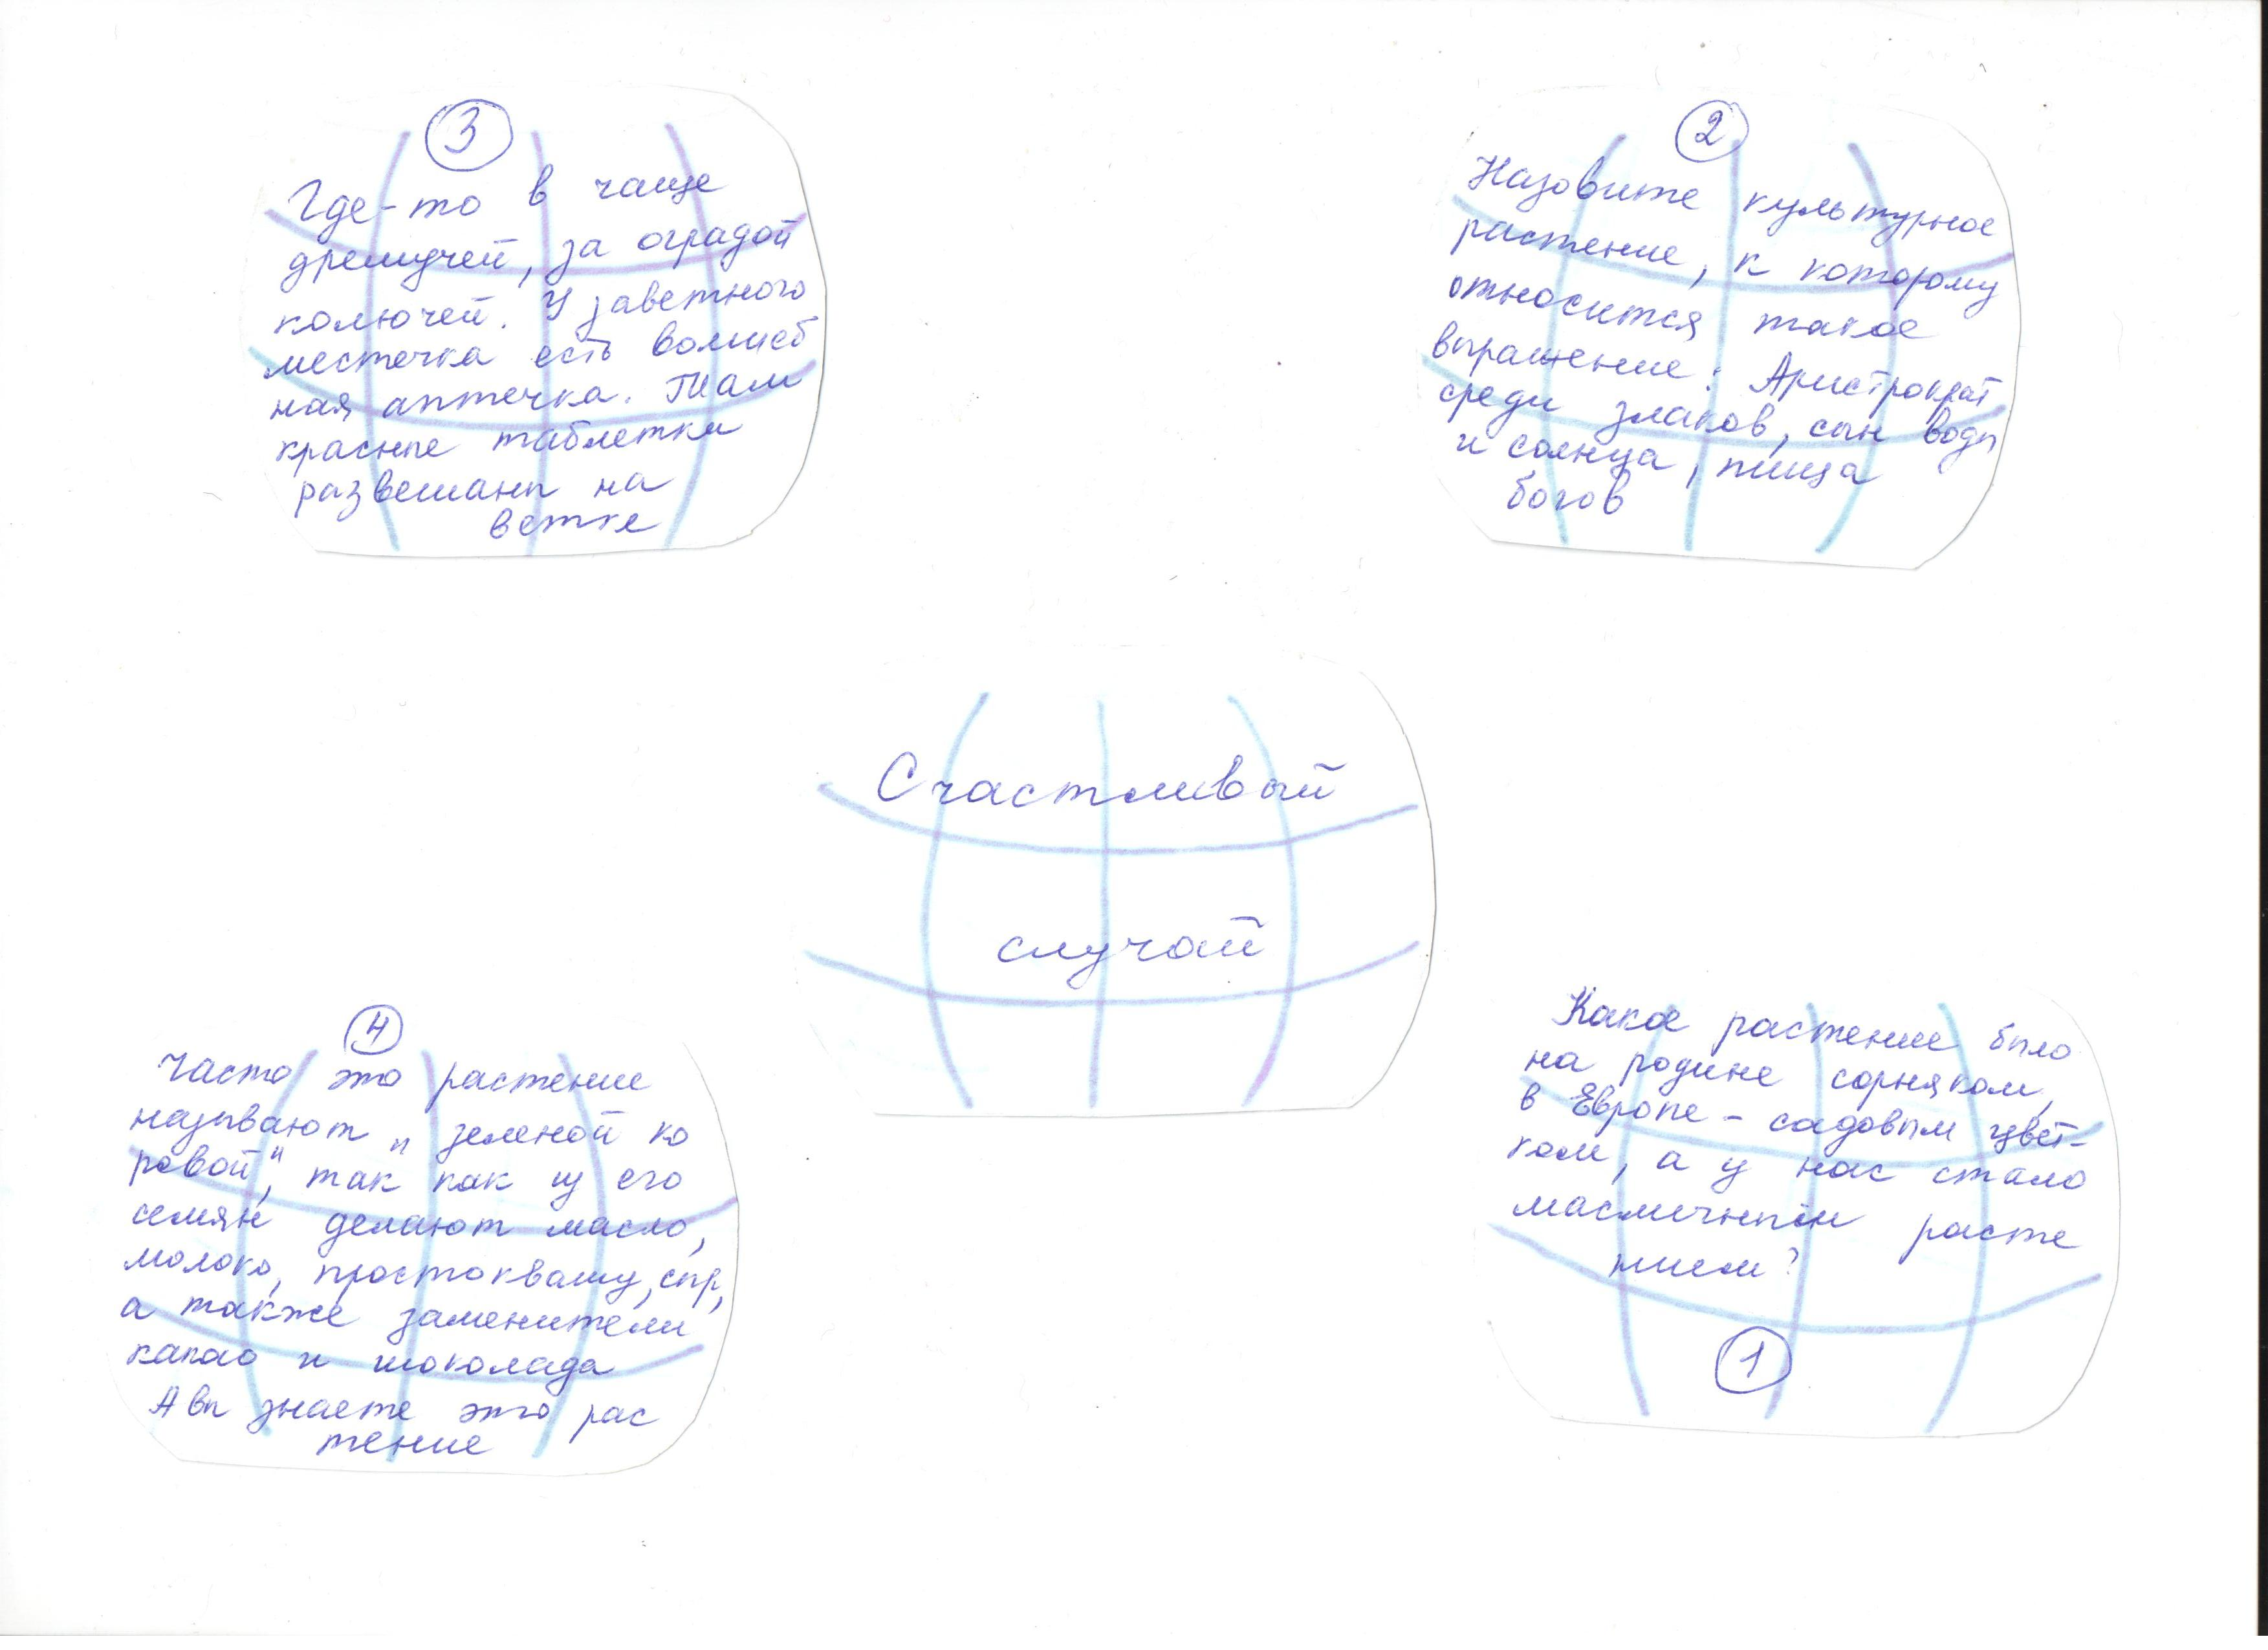 3
Где-то в чаще
дремучей, за оградой
колючей. У заветного
местечка есть волшеб
ная аптечка. Там
красные таблетки
развешаны на
ветке
2
Назовите культурное
растение, к которому
относится такое
выражение: Аристрократ
среди злаков, сын воды
и солнца, пища
богов
Счастливый
случай
4
Часто это растение
называют „зеленой ко
ровой", так как из его
семян делают масло,
молоко, простоквашу, сыр,
а также заменители
какао и шоколада
А вы знаете это рас
тение
Какое растение было
на родине сорняком,
в Европе - садовым цвет-
ком, а у нас стало
масличным расте
нием?
1